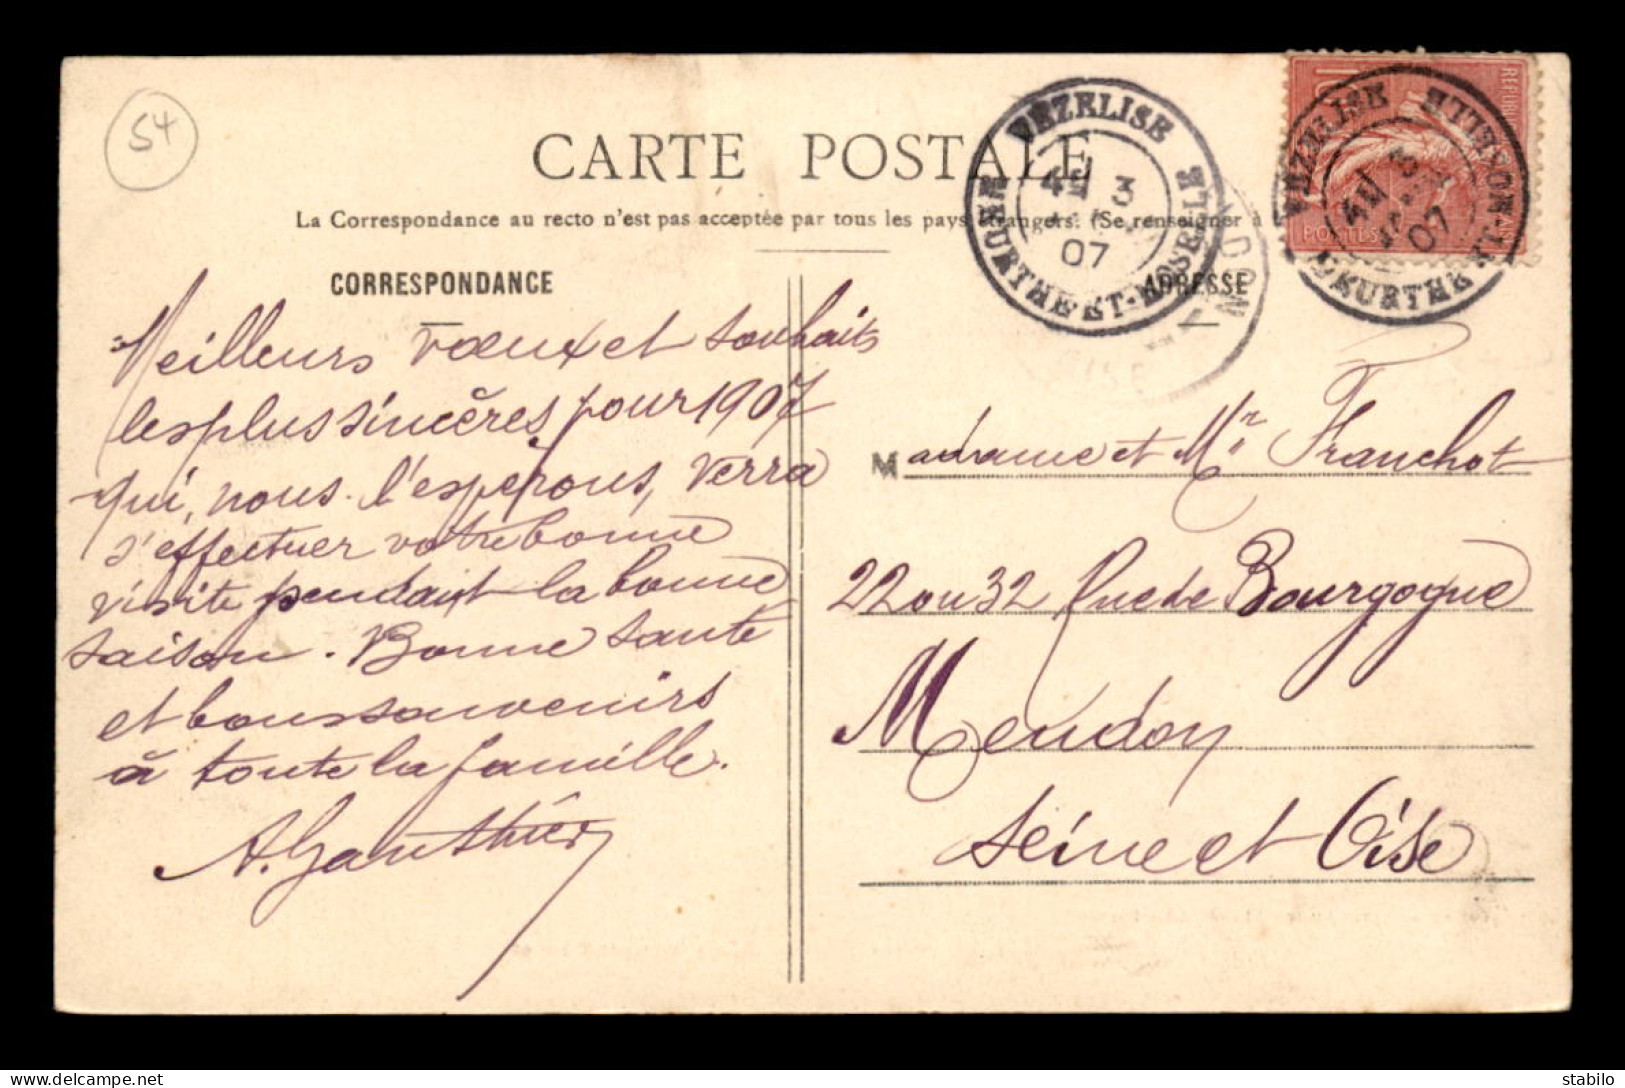 54
CARTE POSTALE
La Correspondance au recto n'est pas acceptée par tous les pays étrangers. (Se renseigner à
CORRESPONDANCE
Meilleurs vœux et souhaits
les plus sincères pour 1907
qui, nous l'espérons, verra
s'effectuer votre bonne
visite pendant la bonne
saison. Bonne santé
et bons souvenirs
à toute la famille.
A. Gauthier
VEZELISE
3
07
MEURTHE-ET-MOSELLE
VEZELISE
3
07
MEURTHE-ET-MOSELLE
10
REPUBLIQUE
POSTES
ADRESSE
Madame et Mr Franchot
22 ou 32 Rue de Bourgogne
Meudon
Seine et Oise
delcampe.net
stabilo